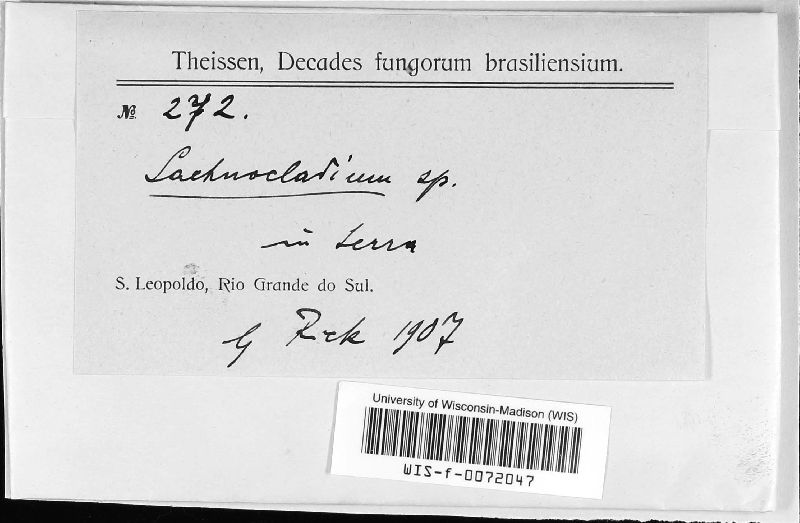 Theissen, Decades fungorum brasiliensium.
№ 272.
Lachnocladium sp.
in terra
S. Leopoldo, Rio Grande do Sul.
lg Rick 1907
University of Wisconsin-Madison (WIS)
WIS-f-0072047